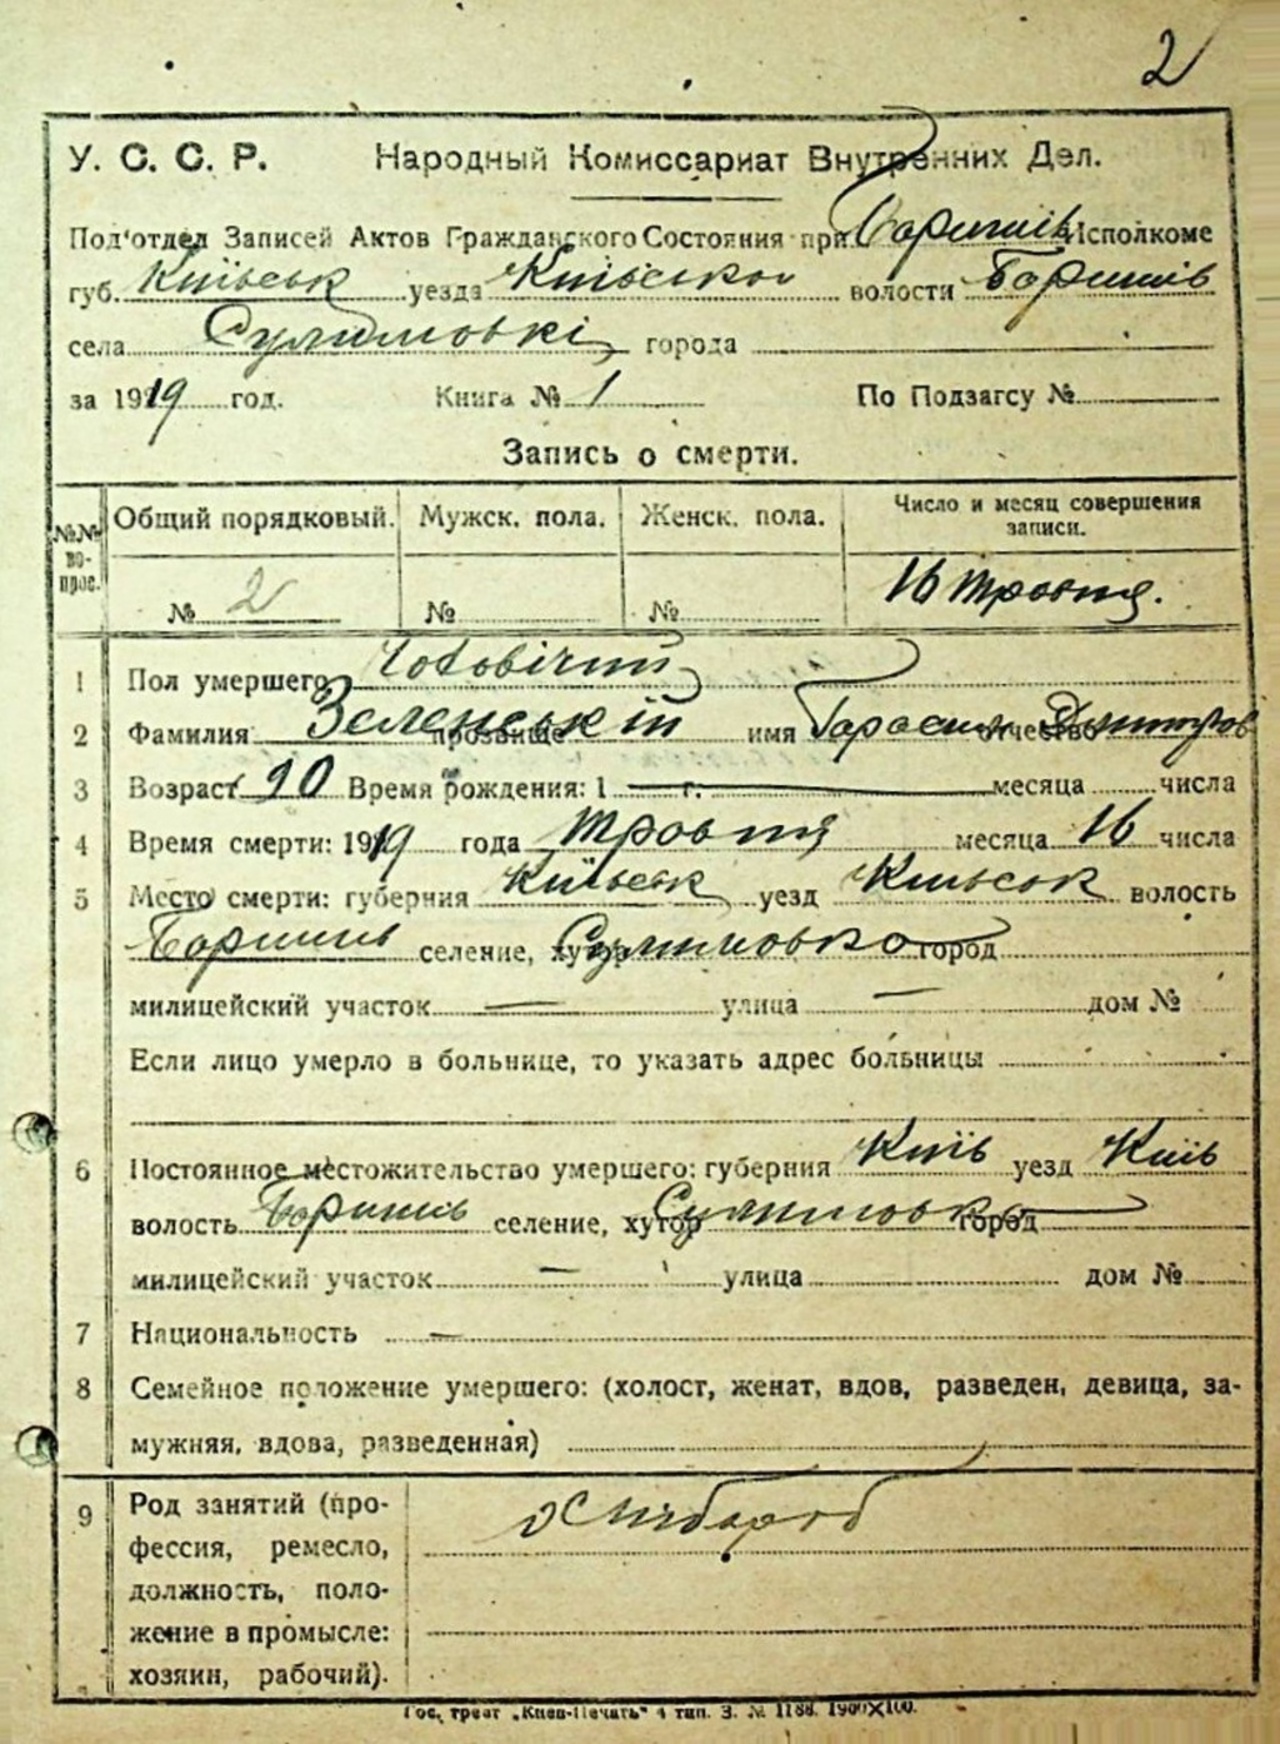 2
У. С. С. Р. Народный Комиссариат Внутренних Дел.
Под'отдел Записей Актов Гражданского Состояния при Боришпів Исполкоме
губ. Київськ уезда Київськои волости Боришпів
села Сулимовкі города
за 1919 год. Книга № 1 По Подзагсу №
Запись о смерти.
№№ вопрос. Общий порядковый. Мужск. пола. Женск. пола. Число и месяц совершения записи.
№ 2 № № 16 травня.
1 Пол умершего чоловічий
2 Фамилия прозвище Зеленський имя отчество
3 Возраст 90 Время рождения: 1 г. месяца числа
4 Время смерти: 1919 года травня месяца 16 числа
5 Место смерти: губерния Київськ уезд Київськ волость
Боришпів селение, хутор Сулимовка город
милицейский участок — улица — дом №
Если лицо умерло в больнице, то указать адрес больницы
6 Постоянное местожительство умершего: губерния Київ уезд Київ
волость Боришпів селение, хутор Сулимовка город
милицейский участок — улица дом №
7 Национальность —
8 Семейное положение умершего: (холост, женат, вдов, разведен, девица, за-
мужняя, вдова, разведенная)
9 Род занятий (про-
фессия, ремесло,
должность, поло-
жение в промысле:
хозяин, рабочий).
Хлібороб
Гос. трест „Киев-Печать" 4 тип. З. № 1188. 1900X100.